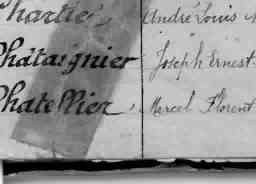 Chartier, André Louis
Châtaignier Joseph Ernest
Chatellier, Marcel Florent